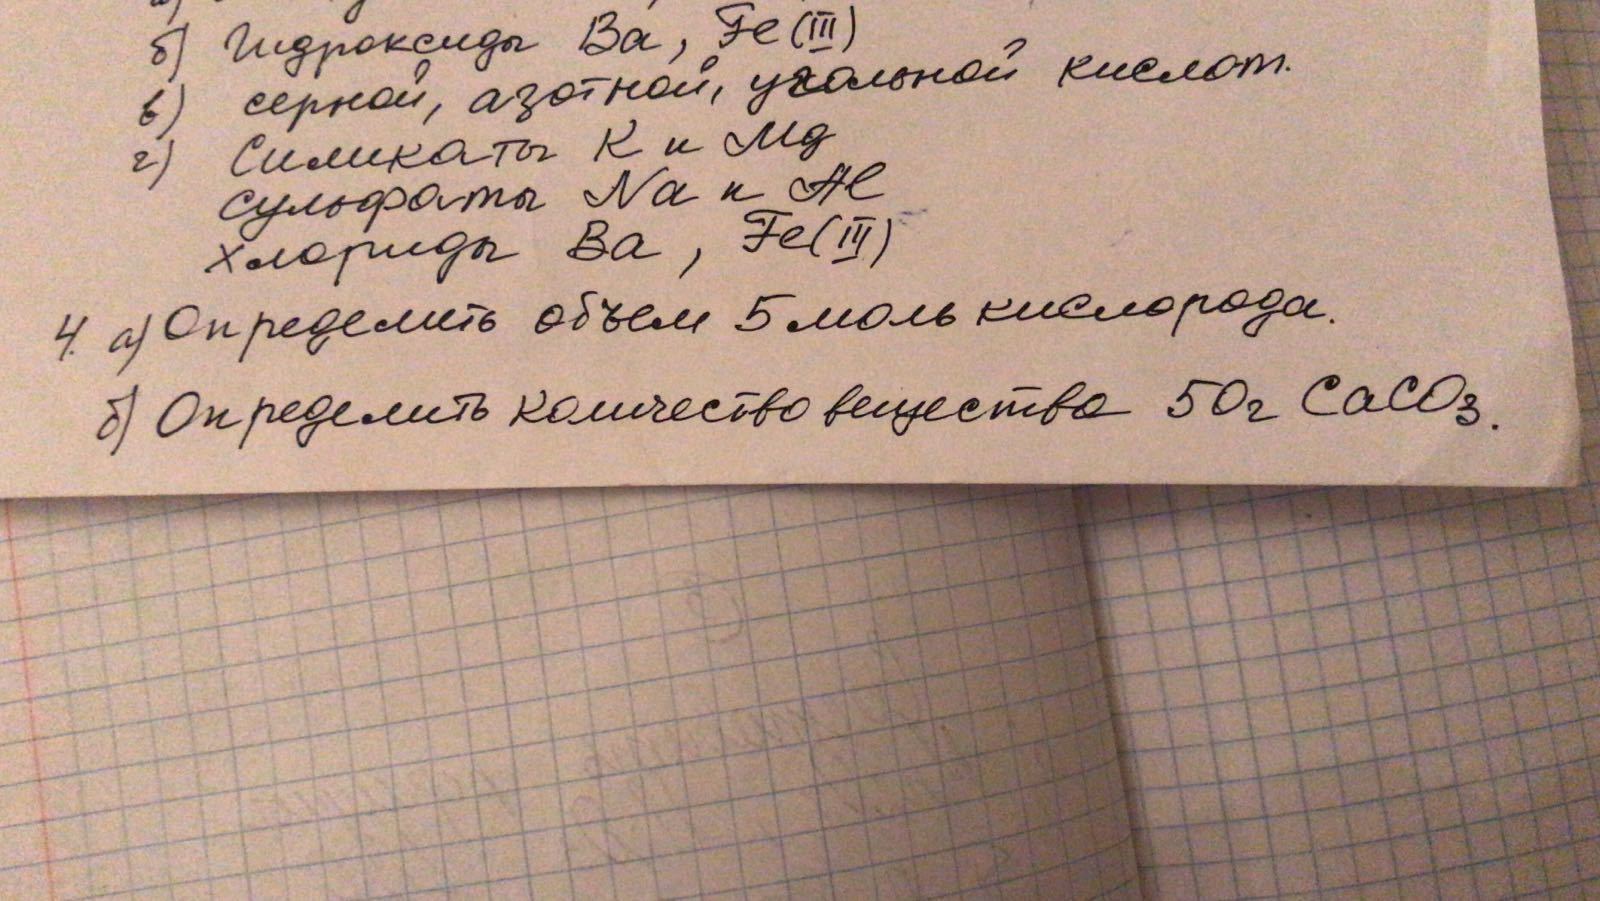 б) Гидроксиды Ba, Fe(III)
в) серной, азотной, угольной кислот.
г) Силикаты K и Mg
сульфаты Na и Al
хлориды Ba, Fe(III)
4. а) Определить объем 5 моль кислорода.
б) Определить количество вещества 50г CaCO3.